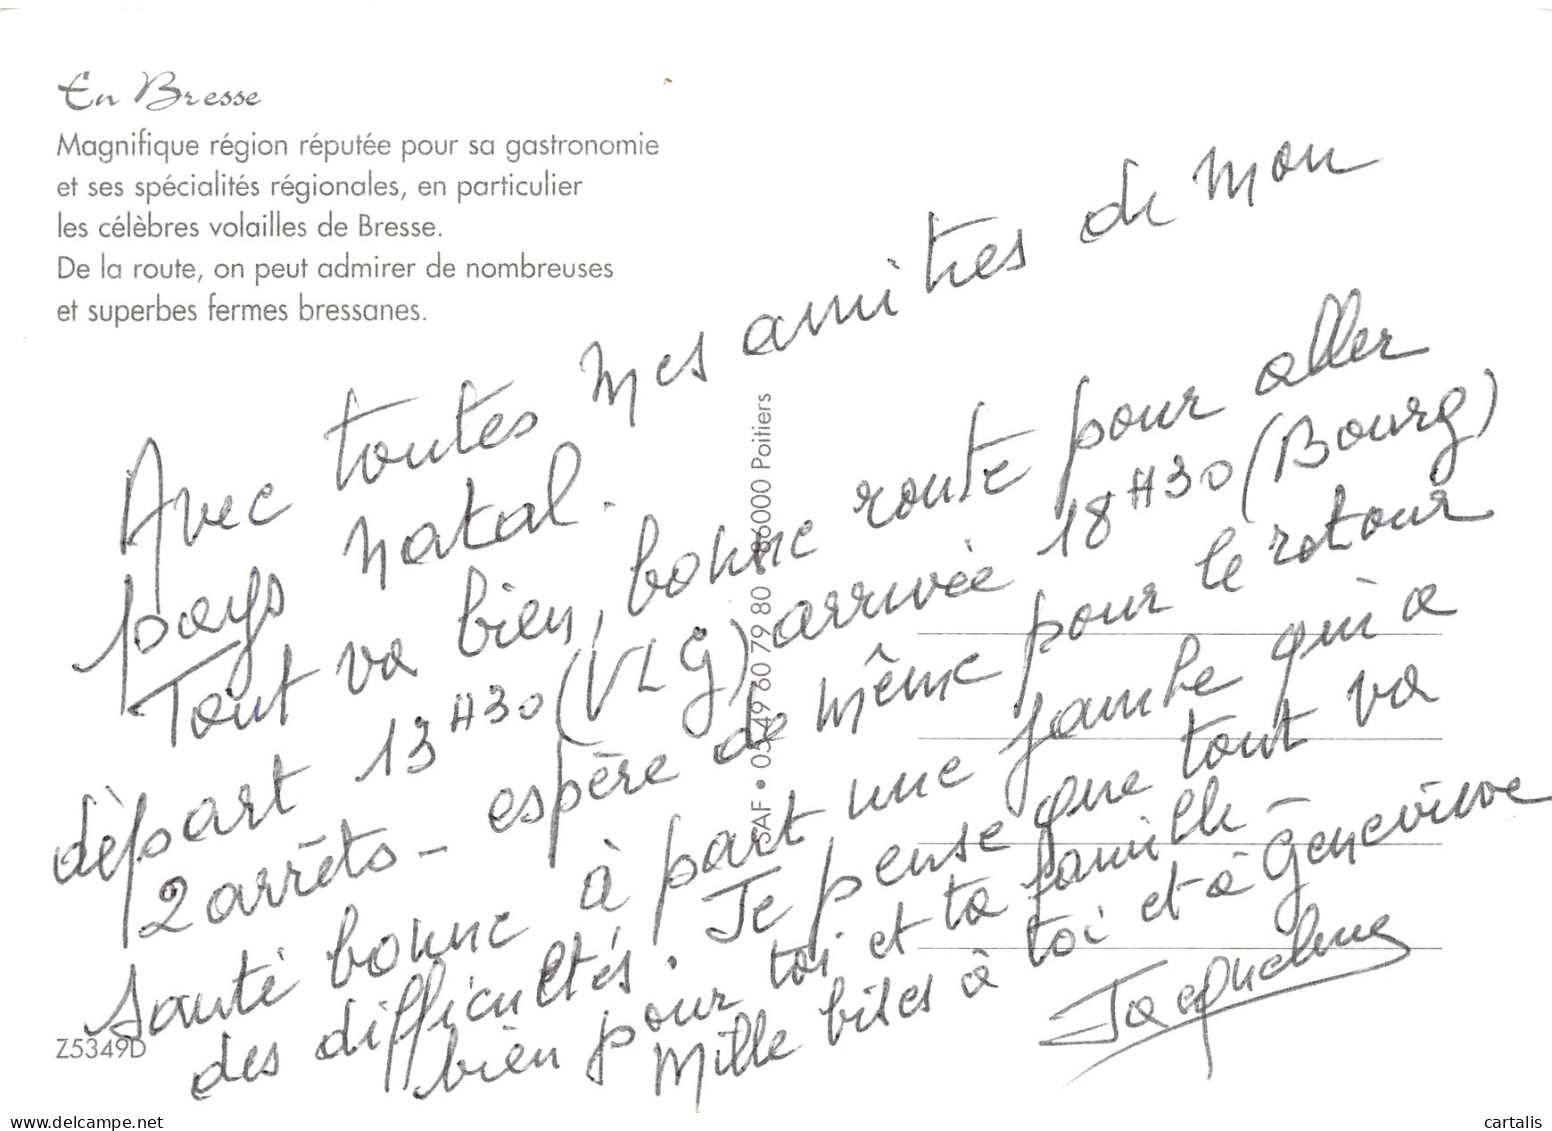 En Bresse
Magnifique région réputée pour sa gastronomie
et ses spécialités régionales, en particulier
les célèbres volailles de Bresse.
De la route, on peut admirer de nombreuses
et superbes fermes bressanes.
Avec toutes mes amitiés de mon
pays natal.
Tout va bien, bonne route pour aller
départ 13H30 (VLG) arrivée 18H30 (Bourg)
2 arrêts - espère de même pour le retour
Santé bonne à part une jambe qui a
des difficultés. Je pense que tout va
bien pour toi et ta famille -
Mille bises à toi et à Geneviève
Jacqueline
SAF • 05 49 60 79 80 • 86000 Poitiers
Z5349D
delcampe.net
cartalis